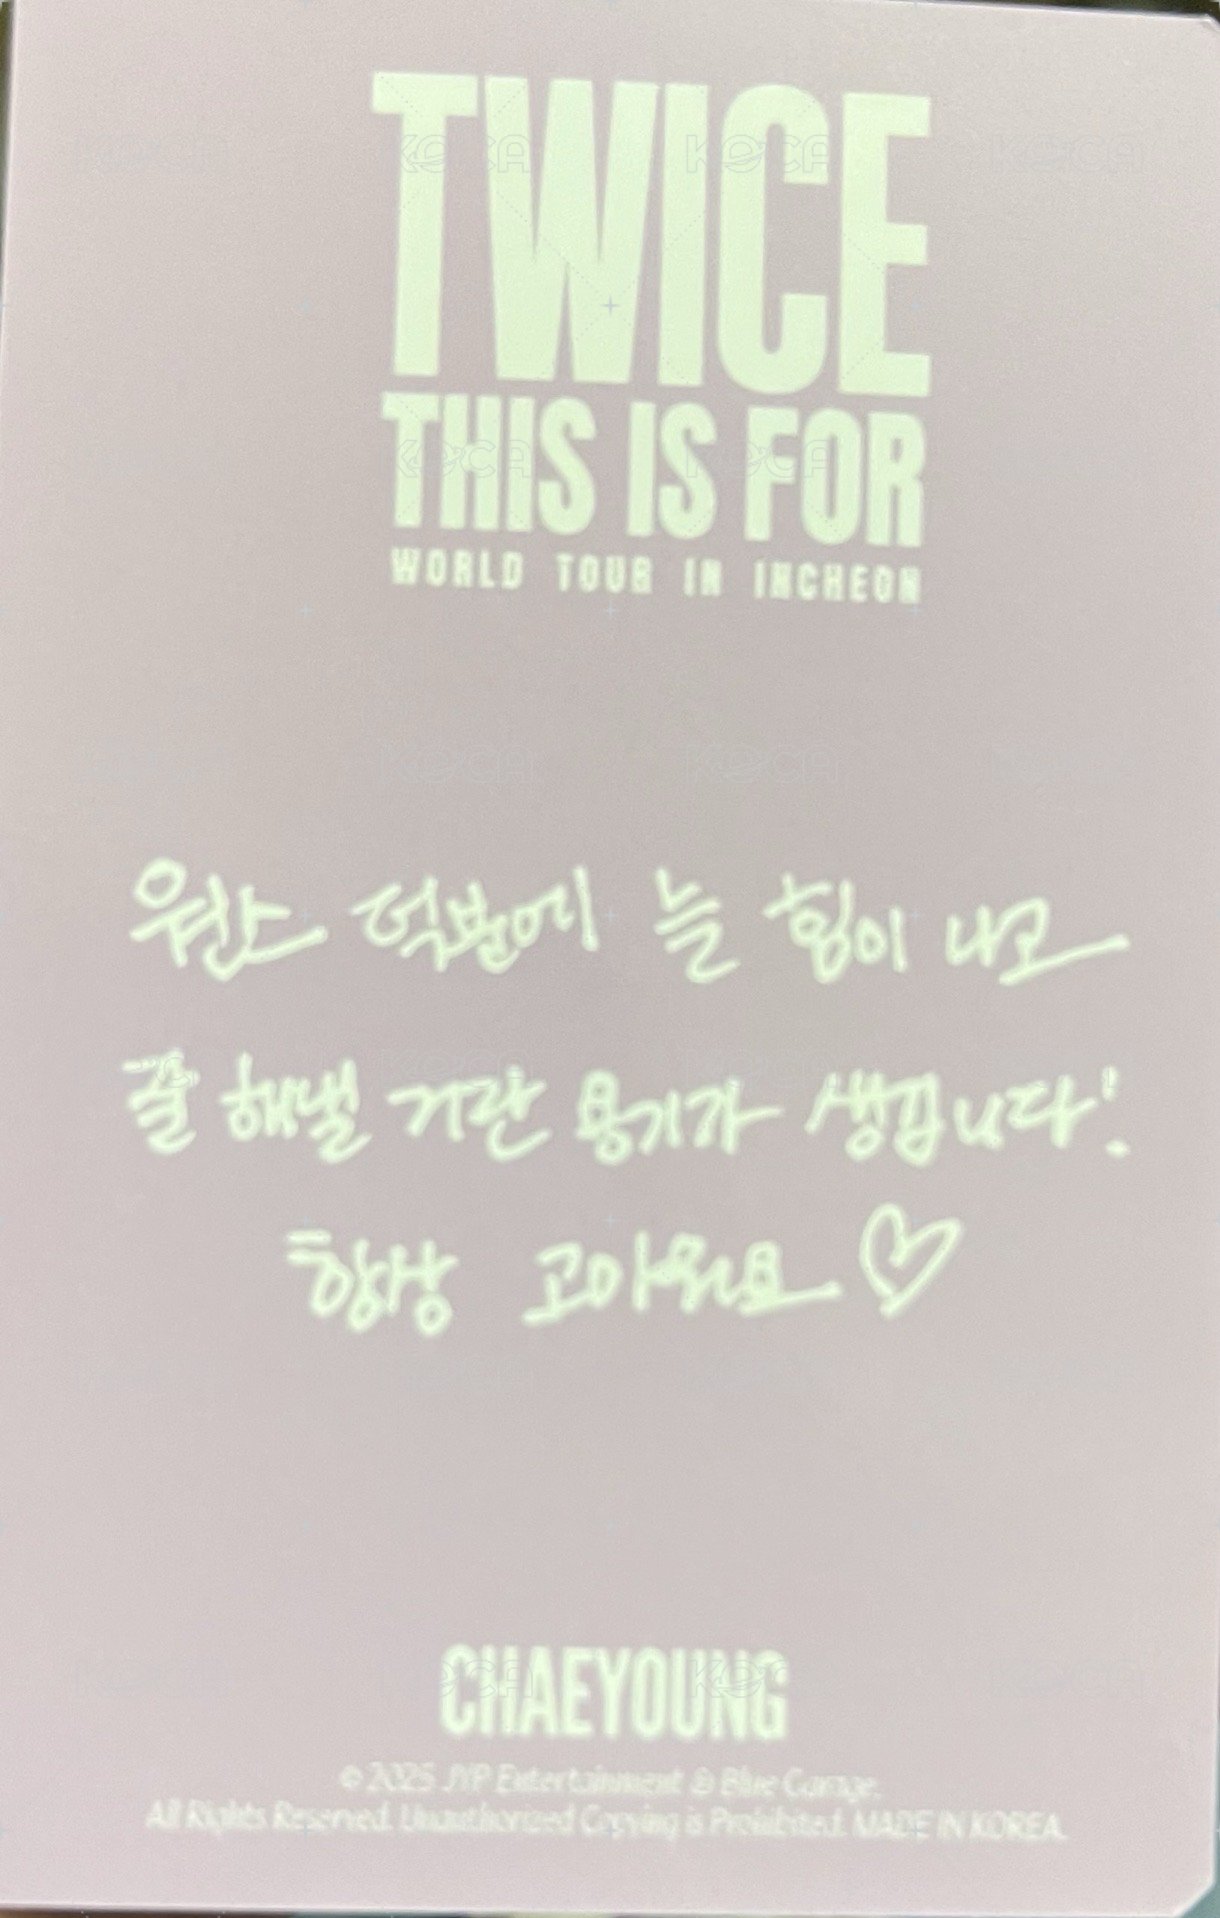 TWICE
THIS IS FOR
WORLD TOUR IN INCHEON
원스 덕분에 늘 힘이 나고
잘 해낼 거란 용기가 생깁니다!
항상 고마워요♡
CHAEYOUNG
© 2025 JYP Entertainment & Blue Garage.
All Rights Reserved. Unauthorized Copying is Prohibited. MADE IN KOREA.
KOCA